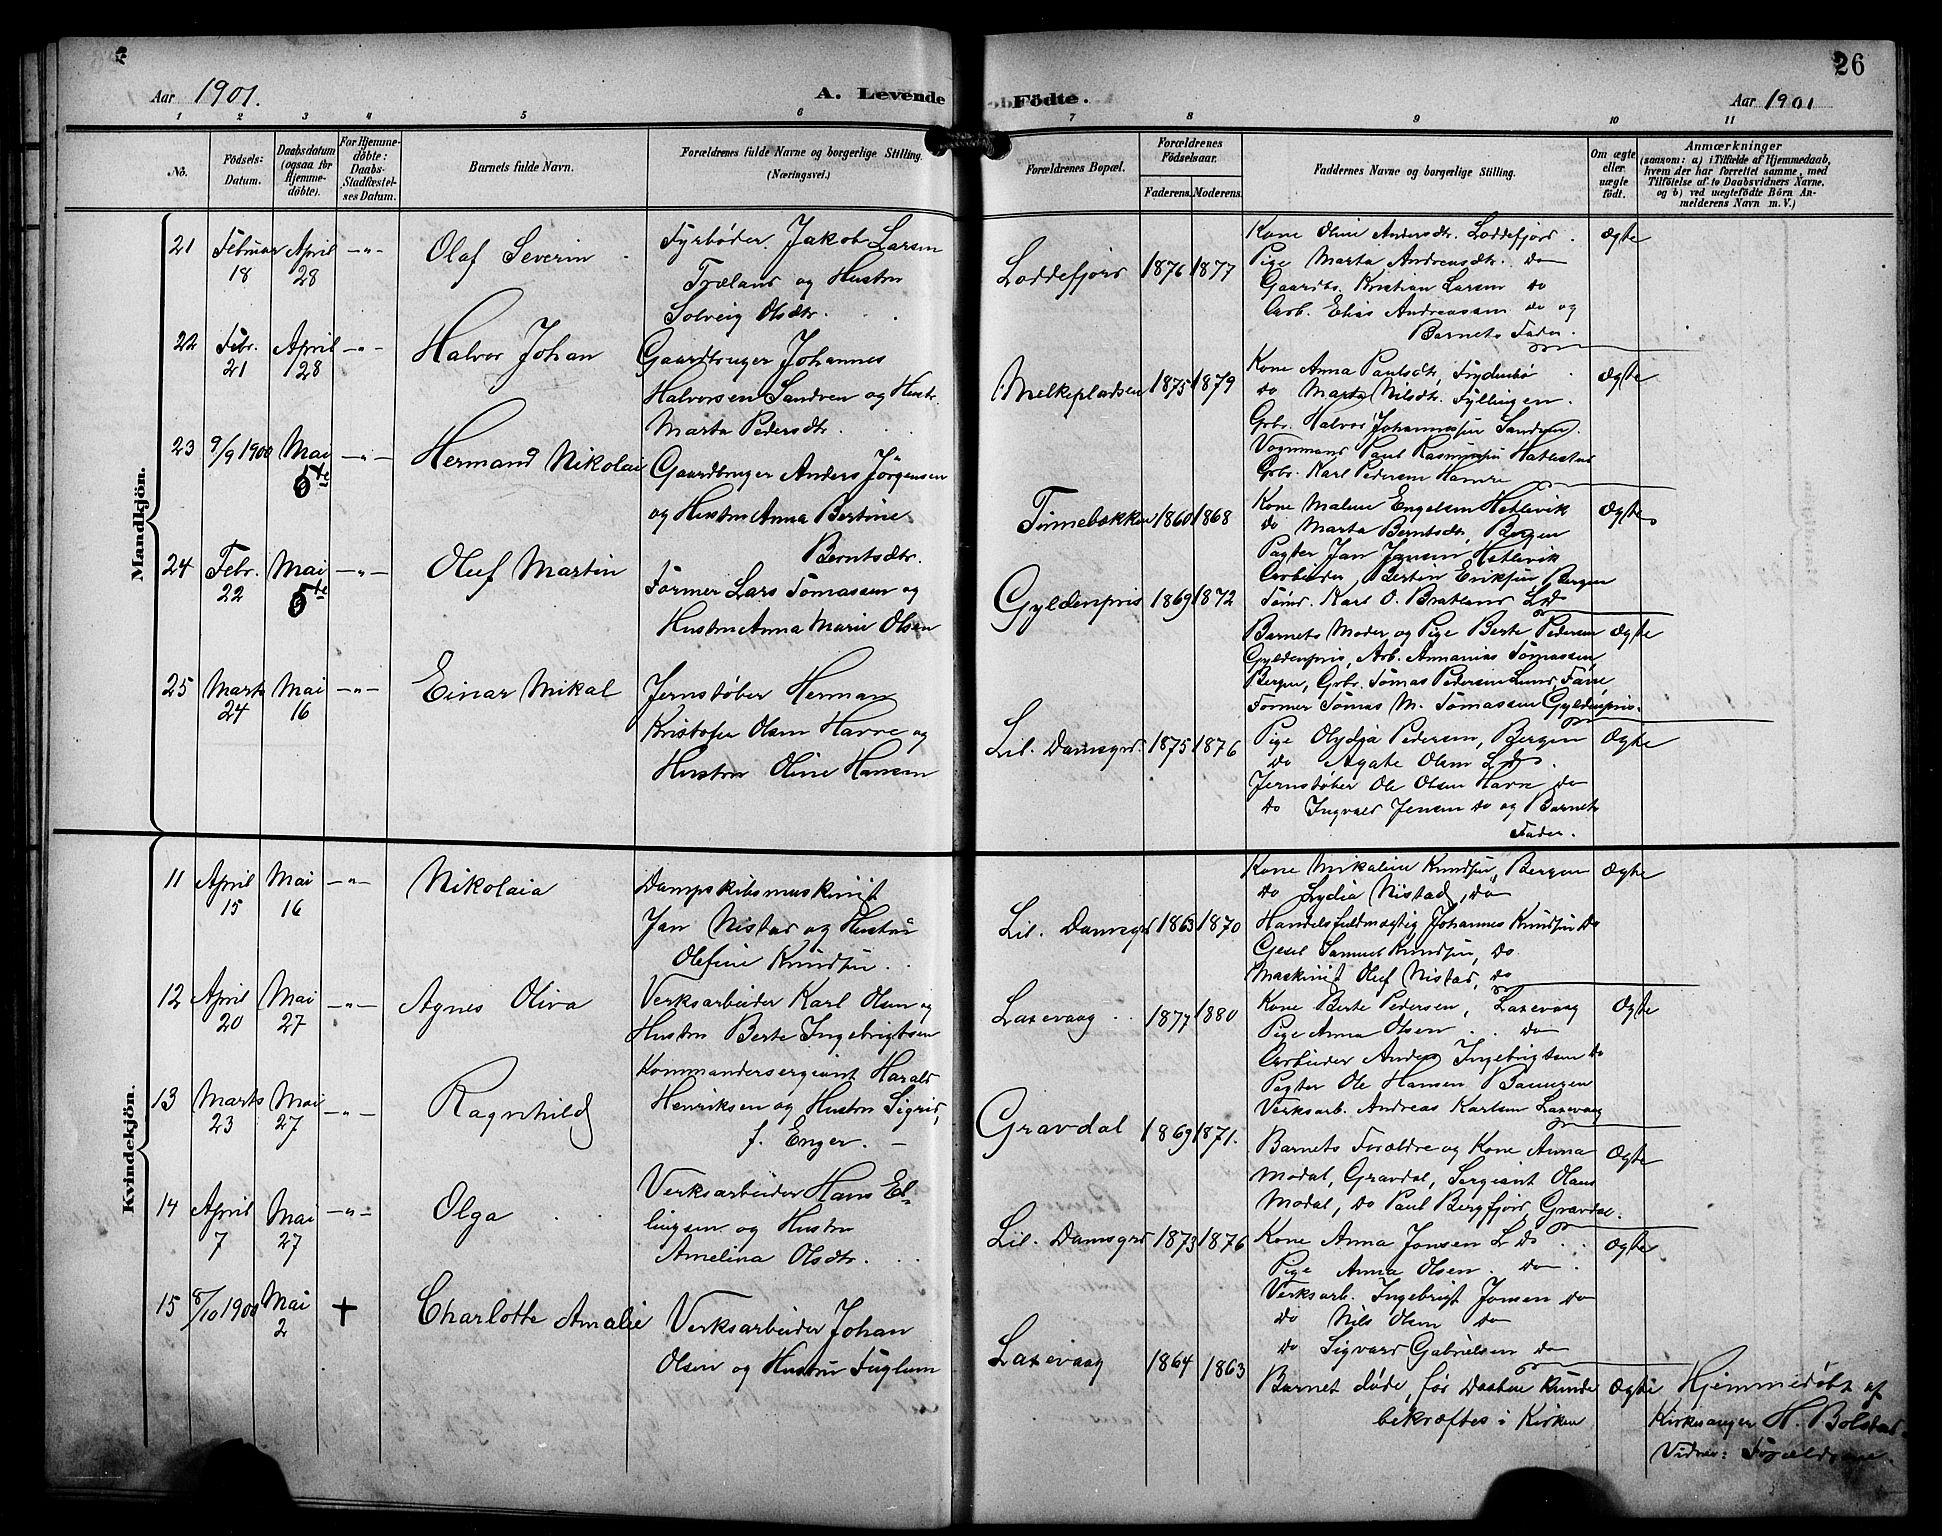 26
Aar 1901.
A. Levende Födte.
Aar 1901
1 2 3 4 5 6 7 8 9 10 11
No.
Födsels-Datum.
Daabsdatum (ogsaa for Hjemmedöbte).
For Hjemmedöbte: Daabs-Stadfæstelses Datum.
Barnets fulde Navn.
Forældrenes fulde Navne og borgerlige Stilling. (Næringsvei.)
Forældrenes Bopæl.
Forældrenes Födselsaar.
Faderens. Moderens.
Faddernes Navne og borgerlige Stilling.
Om ægte eller uægte födt.
Anmærkninger
(saasom: a) i Tilfælde af Hjemmedaab, hvem der har forrettet samme, med Tilföielse af to Daabsvidners Navne, og b) ved uegtefödte Börn Anmelderens Navn m. V.)
Mandkjön.
21 Februar 18 April 28 -„- Olaf Severin
Fyrbøder Jakob Larsen
Træland og Hustru
Solveig Olsdtr.
Loddefjord 1876 1877
Kone Oline Andersdtr. Loddefjord
Pige Marta Andreasdtr. do
Gaardbr. Kristian Larsen do
Arb. Elias Andreassen do og
Barnets Fader.
Ægte
22 Febr. 21 April 28 -„- Halvor Johan
Gaardbruger Johannes
Halvorsen Sandven og Hustr.
Marta Pedersdtr.
Melkepladsen 1875 1879
Kone Anna Paulsdtr, Frydenbø
do Marta Nilsdtr. Fyllingen.
Grbr. Halvor Johannesen Sandven.
Vognmand Paul Rasmusen Hatlestad
Grbr. Karl Pedersen Hamre
Ægte
23 9/9 1900 Mai 5te -„- Hermand Nikolai
Gaardbruger Anders Jörgensen
og Hustru Anna Bertine
Berntsdtr.
Tinnebakken 1860 1868
Kone Malene Engelsen Hetlevik
do Marta Berntsdtr, Bergen
Pagter Jan Jansen Hetlevik
Arbeider, Bertin Eriksen Bergen
Tømr. Karl O. Bratland Ld
Ægte
24 Febr. 22 Mai 5te -„- Oluf Martin
Former Lars Tomassen og
Hustru Anna Marie Olsen
Gyldenpris 1869 1872
Barnets Moder og Pige Berte Pedersen
Gyldenpris, Arb. Annanias Tomassen,
Bergen, Grbr. Tomas Pedersen Lund Farre
Former Tomas M. Tomassen Gyldenpris.
Ægte
25 Marts 24 Mai 16 -„- Einar Mikal
Jernstøber Herman
Kristofer Olsen Havre og
Hustru Oline Hansen
Lil. Damsgrd. 1875 1876
Pige Olydja Pedersen, Bergen
do Agate Olsen Ld.
Jernstøber Ole Olsen Havre do
do Ingvald Jensen do og Barnets
Fader.
Ægte
Kvindekjön.
11 April 15 Mai 16 -„- Nikolaia
Dampskibsmaskinist
Jan Nistad og Hustru
Olefine Knudsen
Lil. Damsgrd 1863 1870
Kone Mikaline Knudsen, Bergen
do Lydia Nistad, do
Handelsfuldmægtig Johannes Knudsen do
Gesel Samuel Knudsen, do
Maskinist Oluf Nistad, do
Ægte
12 April 20 Mai 27 -„- Agnes Oliva
Verksarbeider Karl Olsen og
Hustru Berte Ingebrigtsen
Laxevaag 1877 1880
Kone Berte Pedersen, Laxevaag
Pige Anna Olsen do
Arbeider Anders Ingebrigtsen do
Pagter Ole Hansen
Verksarb. Andreas Karlsen Laxevaag
Ægte
13 Marts 23 Mai 27 -„- Ragnhild
Kommandersergiant Harald
Henriksen og Hustru Sigrid,
f. Enger.
Gravdal 1869 1871.
Barnets Forældre og Kone Anna
Modal, Gravdal, Sergiant Olaus
Modal, do Paul Bergfjord, Gravdal.
Ægte
14 April 7 Mai 27 -„- Olga
Verksarbeider Hans El-
lingsen og Hustru
Amelina Olsdtr.
Lil. Damsgrd 1873 1876
Kone Anna Jonsen Ld
Pige Anna Olsen do
Verksarb. Ingebrigt Jonsen do
do Nils Olsen do
do Sigvard Gabrielsen do
Ægte
15 8/10 1900 Mai 2 + Charlotte Amalie
Verksarbeider Johan
Olsen og Hustru Fuglum
Laxevaag 1864 1863
Barnet døde, før Daaben kunde
bekræftes i Kirken
Ægte
Hjemmedøbt af
Kirkesanger H. Bolstad.
Vidner: Forældrene.